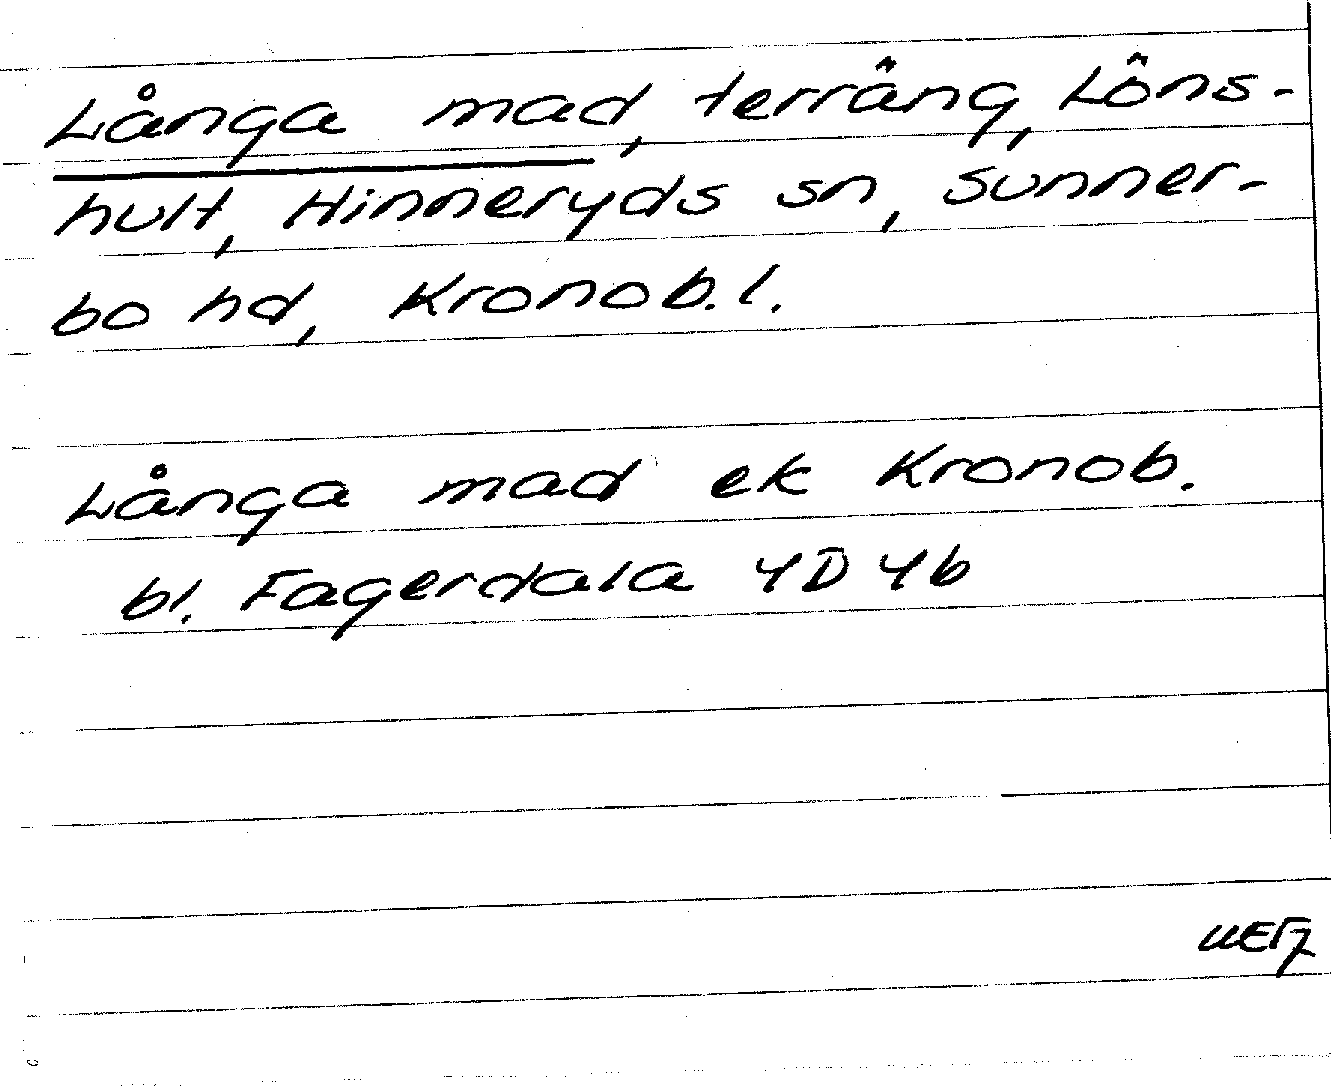 Långa mad, terräng, Löns-
hult, Hinneryds sn, Sunner-
bo hd, Kronob. l.
Långa mad ek Kronob.
bl. Fagerdala 4D 4b